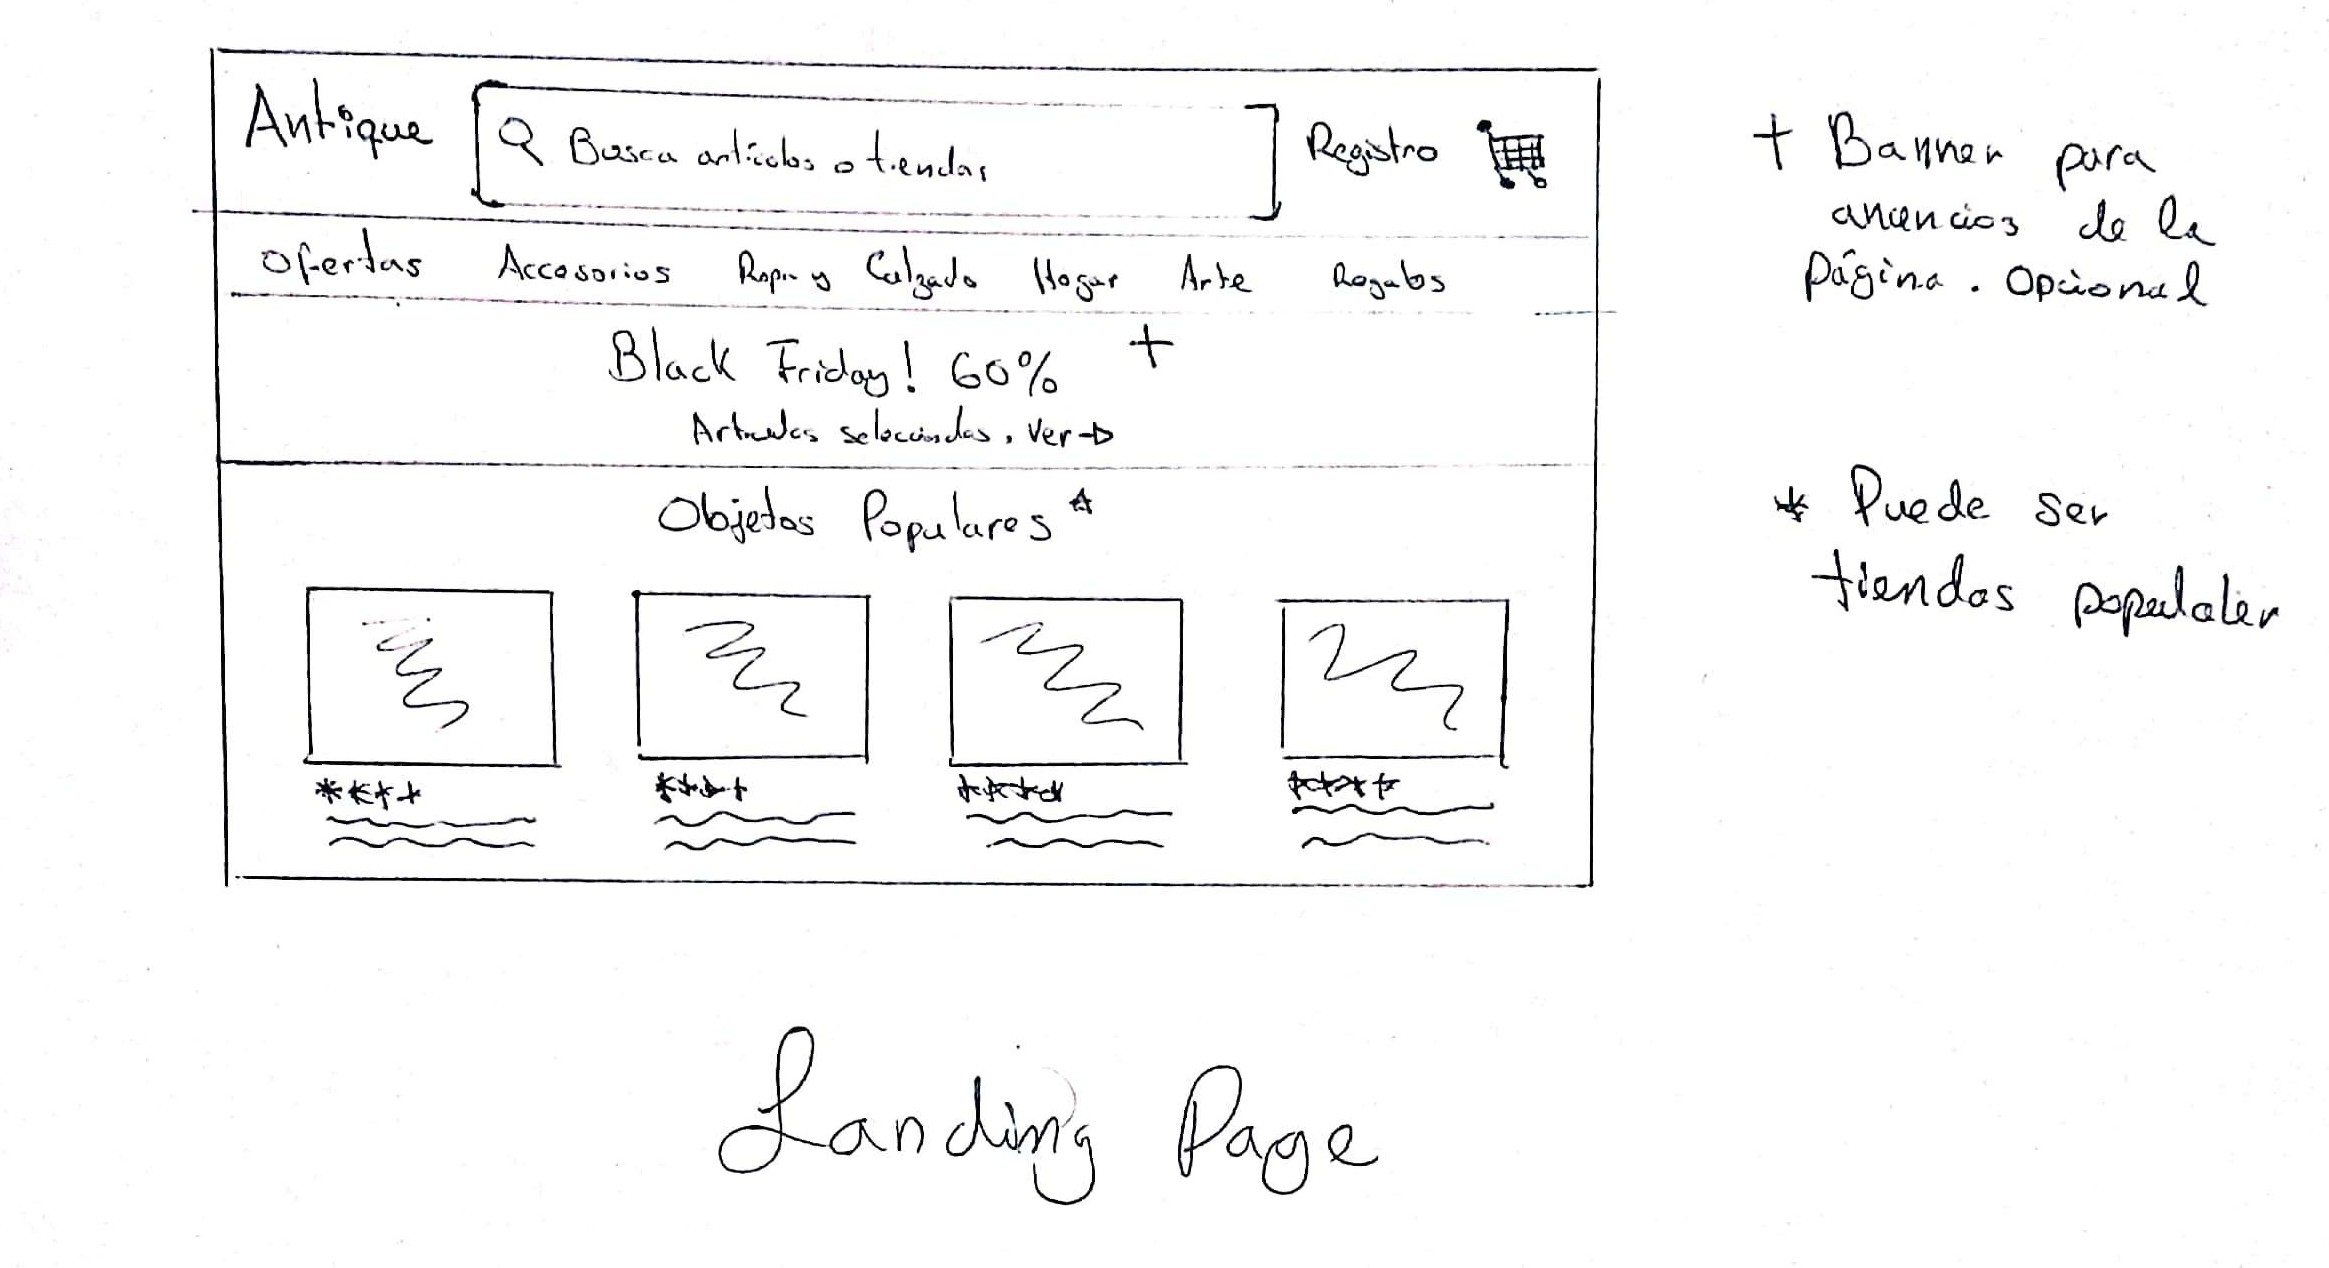 Antique
Busca artículos o tiendas
Registro
Ofertas Accesorios Ropa y Calzado Hogar Arte Regalos
Black Friday! 60% +
Artículos seleccionados, Ver →
Objetos Populares *
+ Banner para
anuncios de la
Página. Opcional
* Puede ser
tiendas populares
Landing Page